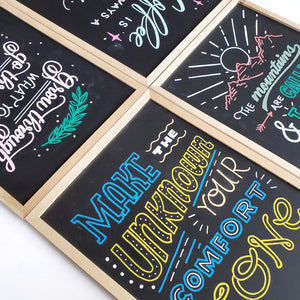 Coffee
IS ALWAYS A
Grow through
WHAT YOU
go th
the mountains
are
&
MAKE
THE
UNKNOWN
YOUR
COMFORT
ZONE